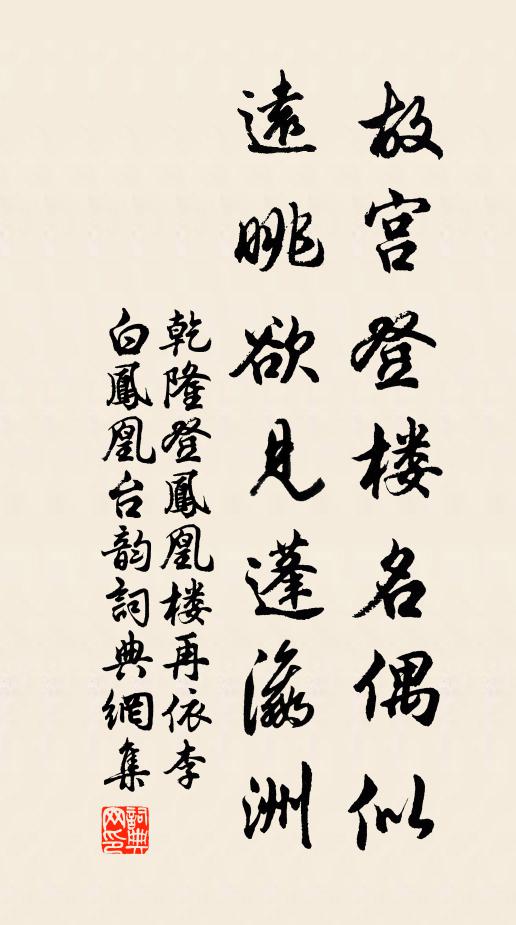 故宫登楼名偶似
遠眺欲見蓬瀛洲
乾隆登鳳凰楼再依李
白鳳凰台韵詞典網集
詞典网印